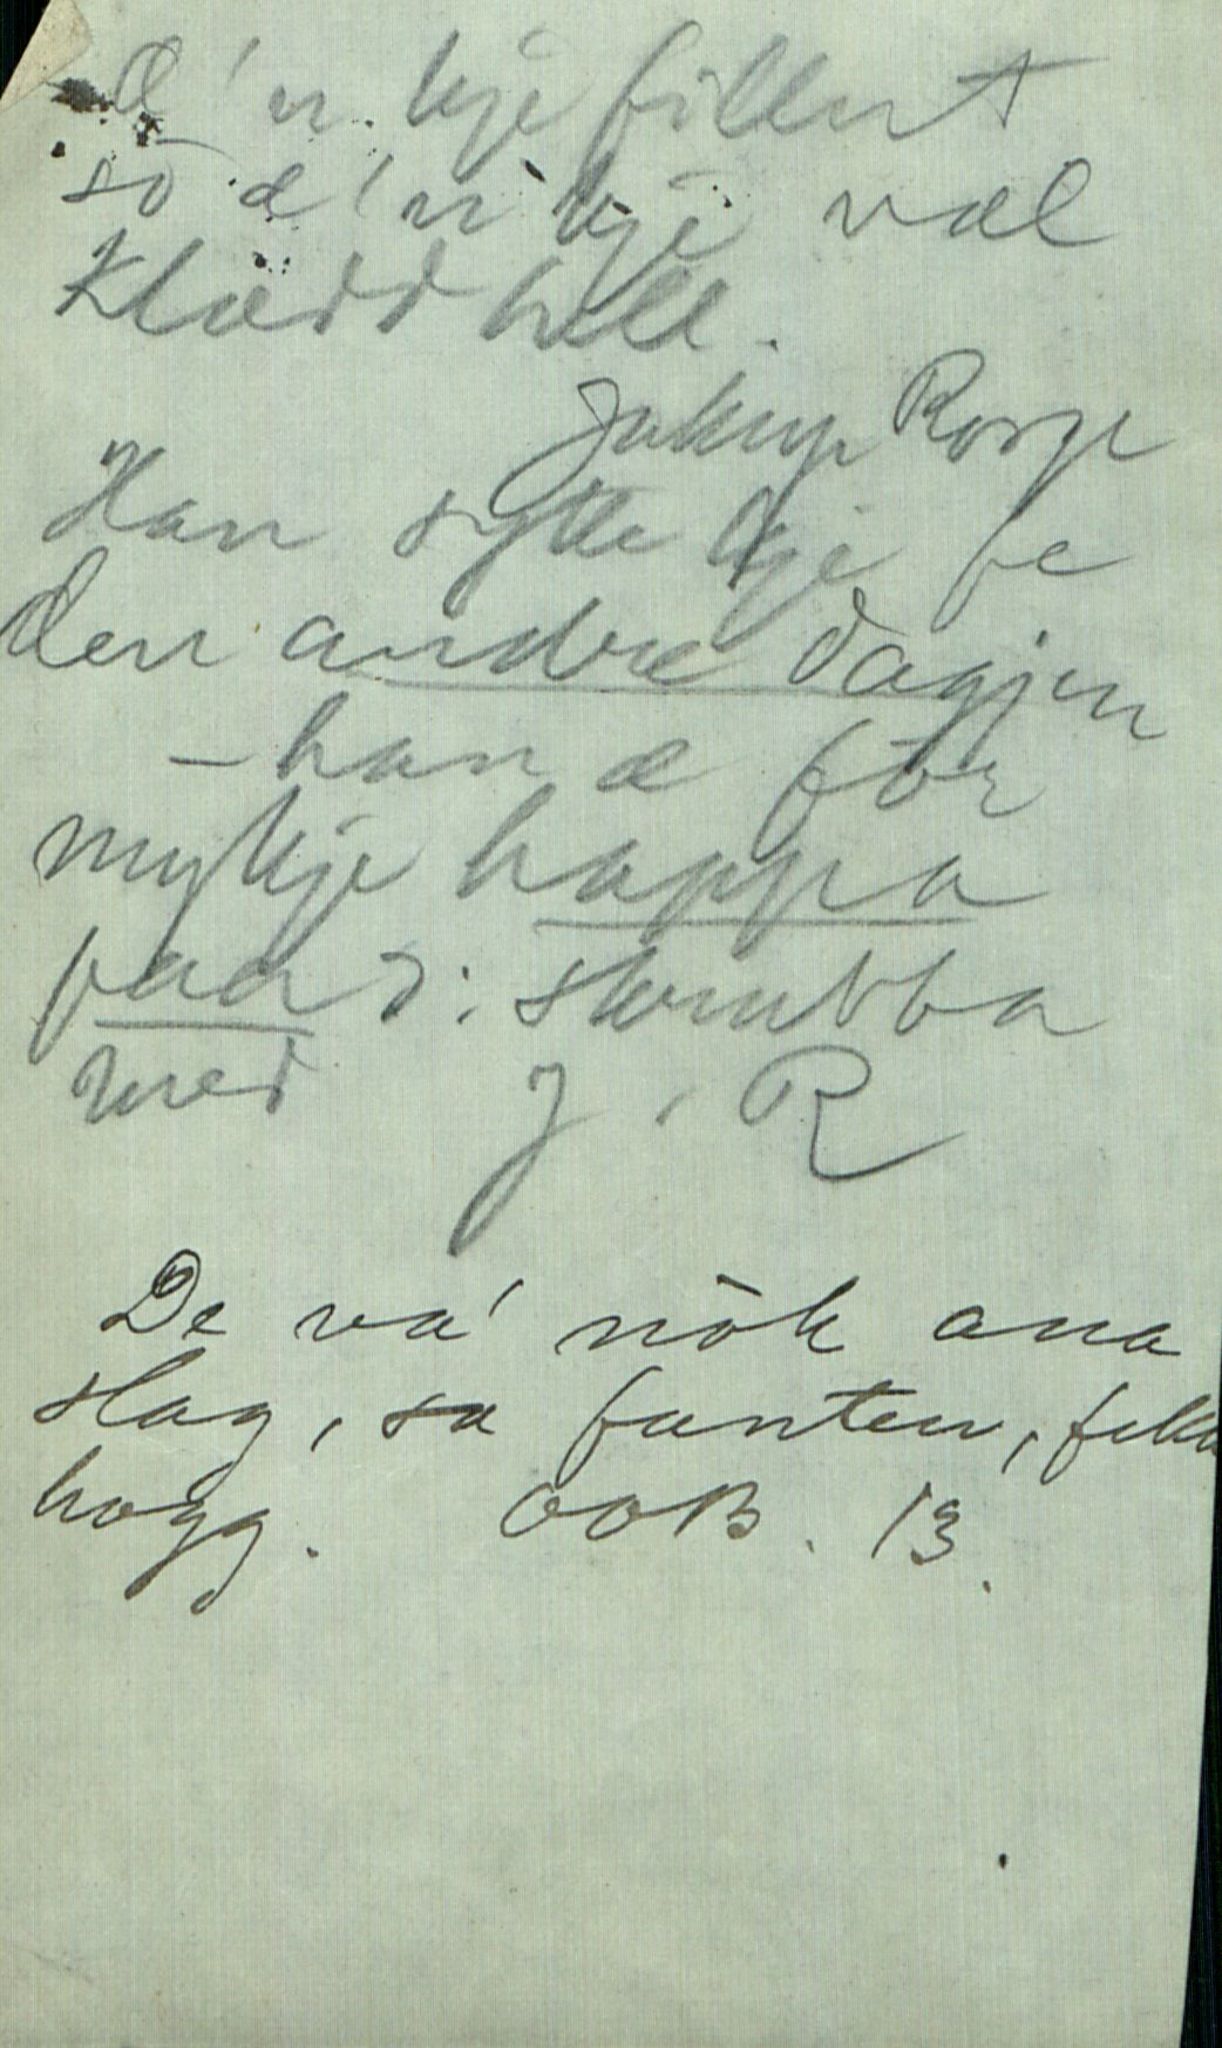 Æ'n kje fillut
so æ'n kje væl
Klædd hell.
Jakup Rorge
Han sytte kje fe
den andre dagjen
– han æ før
mykje happa
paa ɔ: skrubba
med J. R
De va' nōk ana
slag, sa fanten, fekk
hogg. OOB. 13.